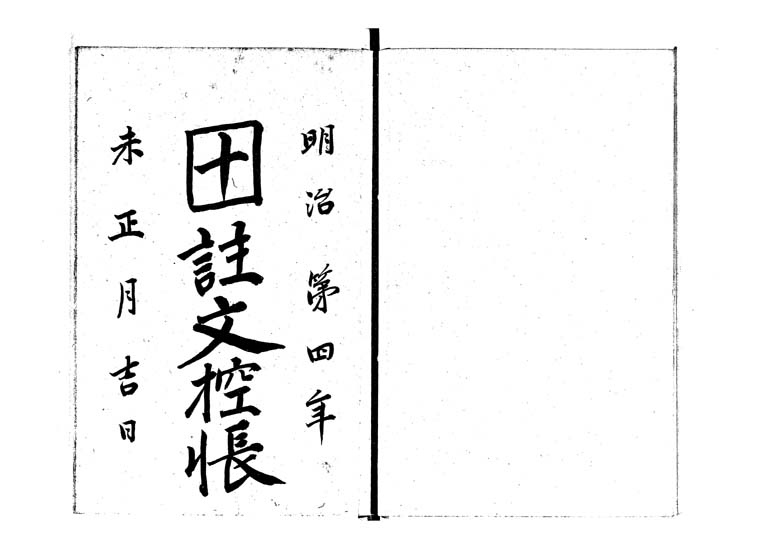 明治第四年
十註文控帳
未正月吉日